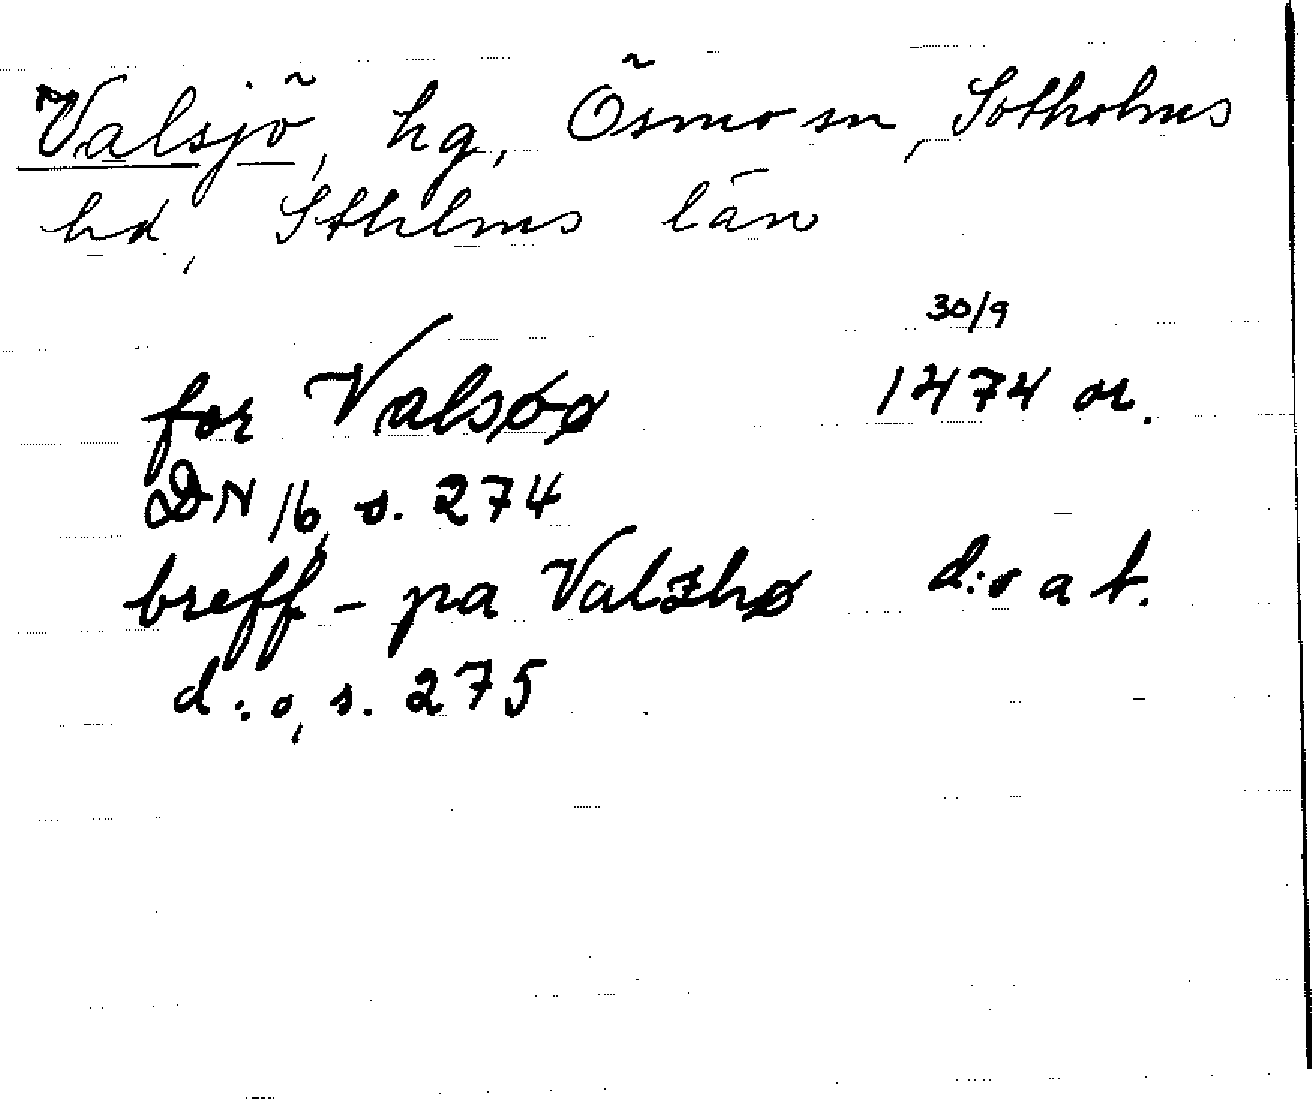 Valsjö, hg, Ösmo sn, Sotholms
hd, Sthlms län
30/9
for Valsøø 1474 or.
DN 16, s. 274
breff - pa Valzhø d:o a t.
d:o, s. 275